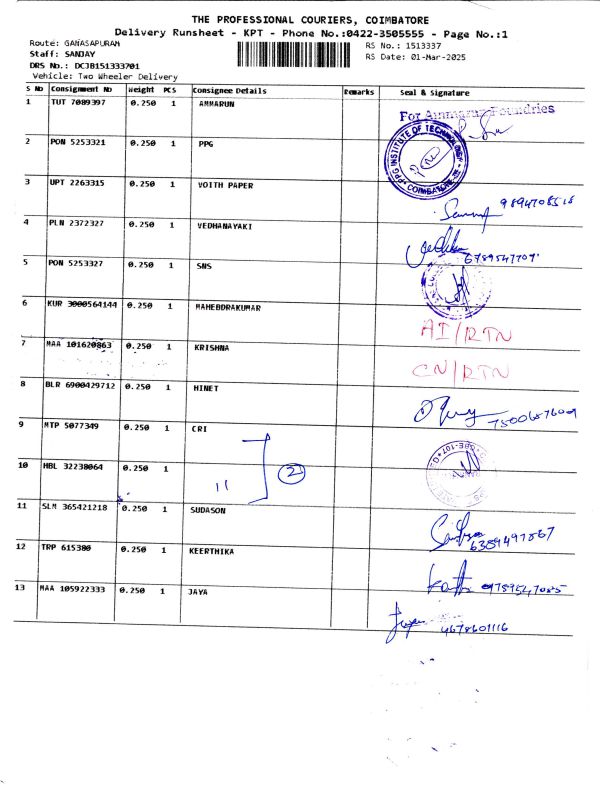 THE PROFESSIONAL COURIERS, COIMBATORE
Delivery Runsheet - KPT - Phone No.:0422-3505555 - Page No.:1
Route: GANASAPURAM
RS No.: 1513337
Staff: SANJAY
RS Date: 01-Mar-2025
DRS No.: DCJB151333701
Vehicle: Two Wheeler Delivery
S No Consignment No Weight PCS Consignee Details Remarks Seal & signature
1 TUT 7089397 0.250 1 AMMARUN
For Ammarun Foundries
2 PON 5253321 0.250 1 PPG
PPG INSTITUTE OF TECHNOLOGY COIMBATORE
3 UPT 2263315 0.250 1 VOITH PAPER
9894708518
4 PLN 2372327 0.250 1 VEDHANAYAKI
6789547707
5 PON 5253327 0.250 1 SNS
6 KUR 3000564144 0.250 1 MAHEBDRAKUMAR
AI/RTN
7 MAA 101620863 0.250 1 KRISHNA
CN/RTN
8 BLR 6900429712 0.250 1 MINET
7500687609
9 MTP 5077349 0.250 1 CRI
10 HBL 32238064 0.250 1 11 2
11 SLM 365421218 0.250 1 SUDASON
6389497867
12 TRP 615380 0.250 1 KEERTHIKA
9789547085
13 MAA 105922333 0.250 1 JAYA
4678601116